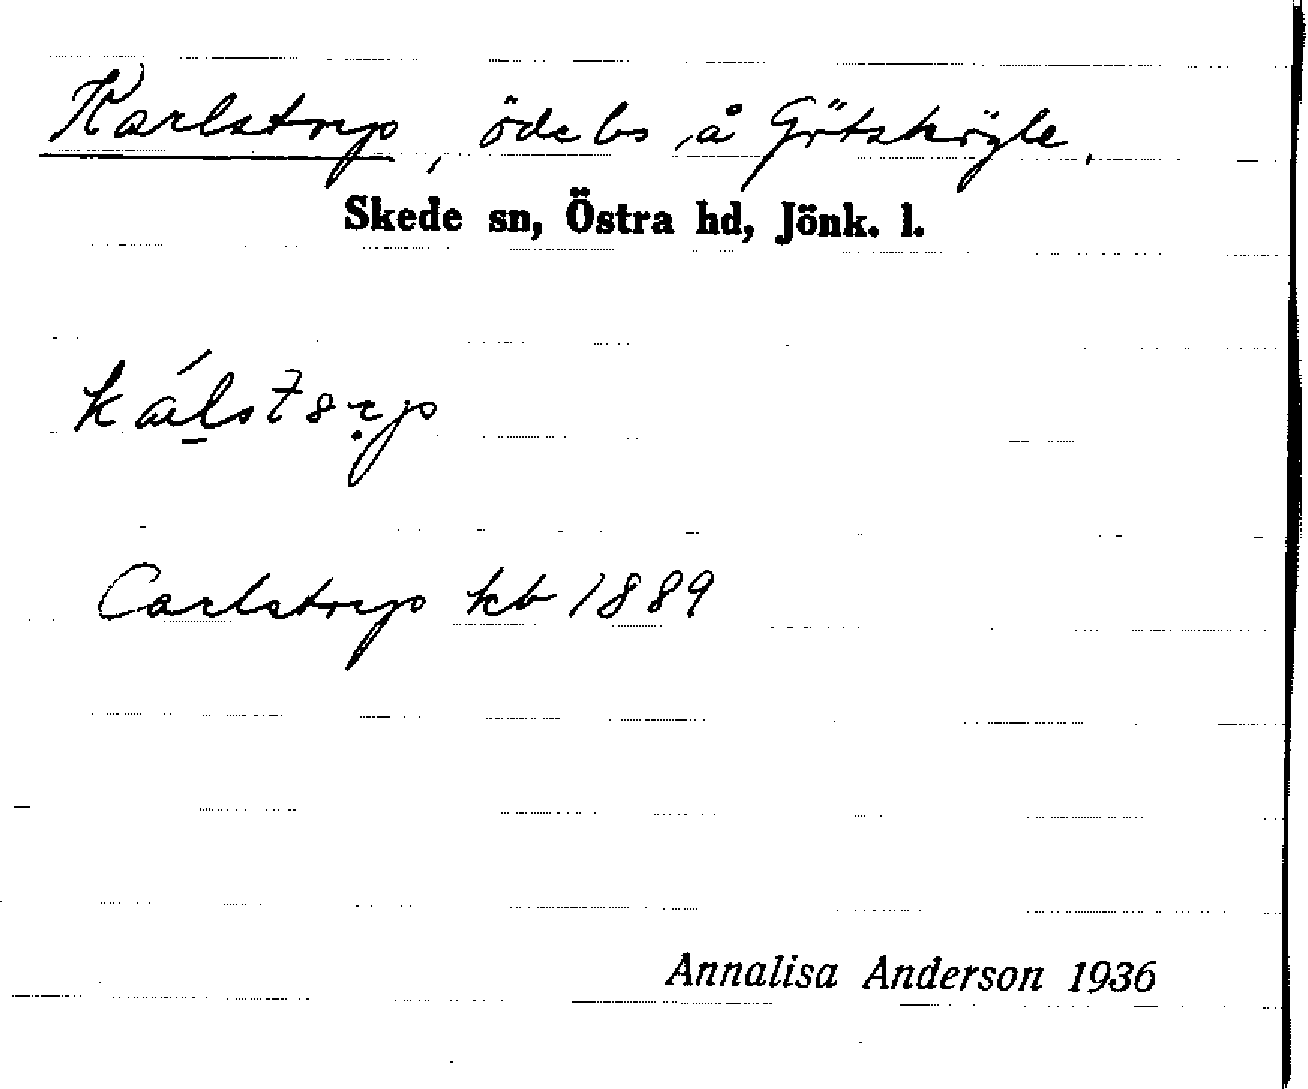 Karlstorp, ödebs å Götshögle.
Skede sn, Östra hd, Jönk. l.
Carlstorp kb 1889
Annalisa Anderson 1936